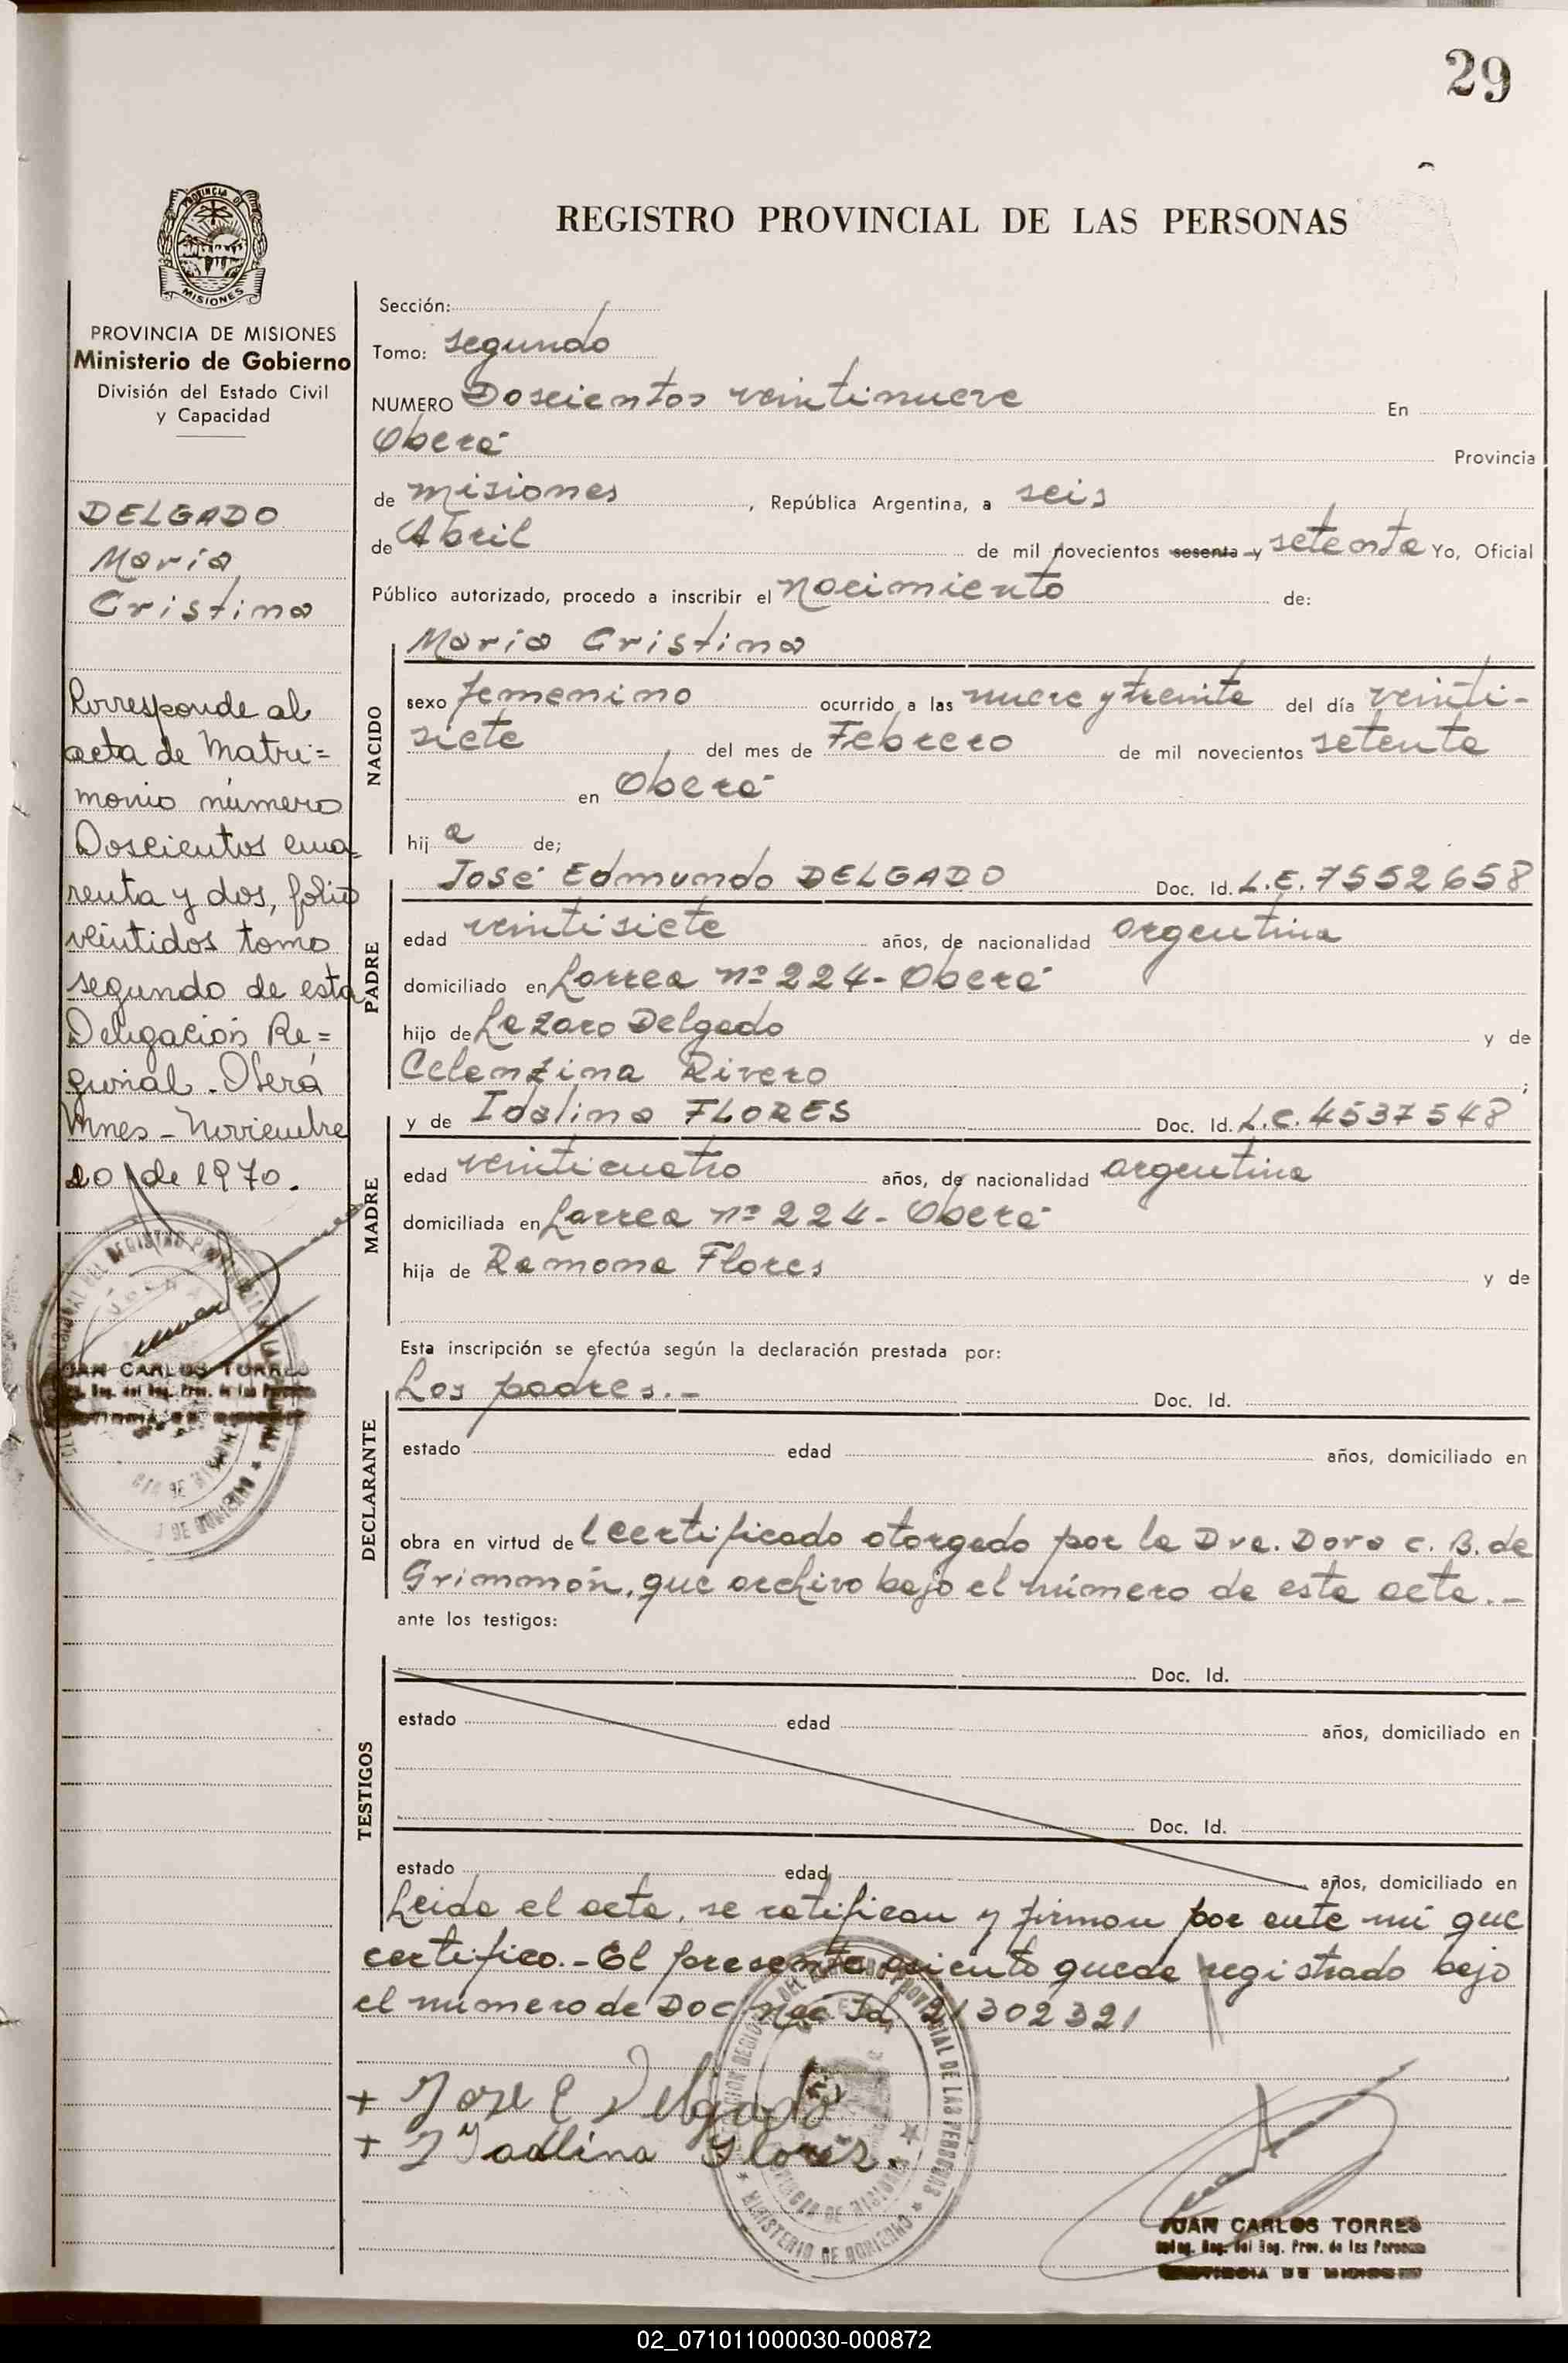 29
REGISTRO PROVINCIAL DE LAS PERSONAS
PROVINCIA DE MISIONES
Ministerio de Gobierno
División del Estado Civil
y Capacidad
DELGADO
Maria
Cristina
Corresponde al
acta de Matri=
monio número
Doscientos cua=
renta y dos, folio
veintidos tomo
segundo de esta
Delegación Re=
gional. Oberá
Mnes - Noviembre
20 de 1970.
JUAN CARLOS TORRES
Sección:
Tomo: segundo
NUMERO Doscientos veintinueve En
Oberá Provincia
de Misiones, República Argentina, a seis
de Abril de mil novecientos sesenta y setenta Yo, Oficial
Público autorizado, procedo a inscribir el nacimiento de:
NACIDO
Maria Cristina
sexo femenino ocurrido a las nueve y treinta del día veinti-
siete del mes de Febrero de mil novecientos setenta
en Oberá
hij a de;
PADRE
José Edmundo DELGADO Doc. Id. L.E. 7552658
edad veintisiete años, de nacionalidad argentina
domiciliado en Larrea nº 224- Oberá
hijo de Lazaro Delgado y de
Celenzina Rivero;
MADRE
y de Idalina FLORES Doc. Id. L.C. 4537548
edad veinticuatro años, de nacionalidad argentina
domiciliada en Larrea nº 224- Oberá
hija de Ramona Flores y de
Esta inscripción se efectúa según la declaración prestada por:
DECLARANTE
Los padres.- Doc. Id.
estado edad años, domiciliado en
obra en virtud de l certificado otorgado por la Dra. Dora C. B. de
Grimmón, que archivo bajo el número de esta acta.-
ante los testigos:
TESTIGOS
Doc. Id.
estado edad años, domiciliado en
Doc. Id.
estado edad años, domiciliado en
Leida el acta, se ratifican y firman por ante mí que
certifico.- El presente asiento queda registrado bajo
el número de Doc Nac Id 21302321
+ Jose E Delgado
+ Idalina Flores.
MINISTERIO DE GOBIERNO
JUAN CARLOS TORRES
02_071011000030-000872